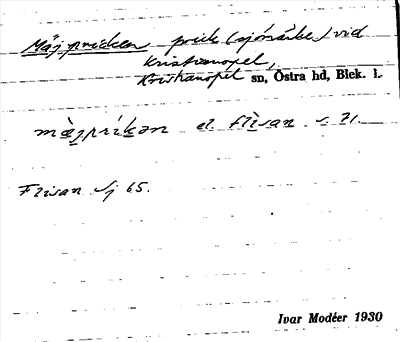 Majpricken prick (sjömärke) vid
Kristianopel,
Kristianopel sn, Östra hd, Blek. l.
màjpríkən el. flìsan s. 71.
Flisan Sj 65.
Ivar Modéer 1930